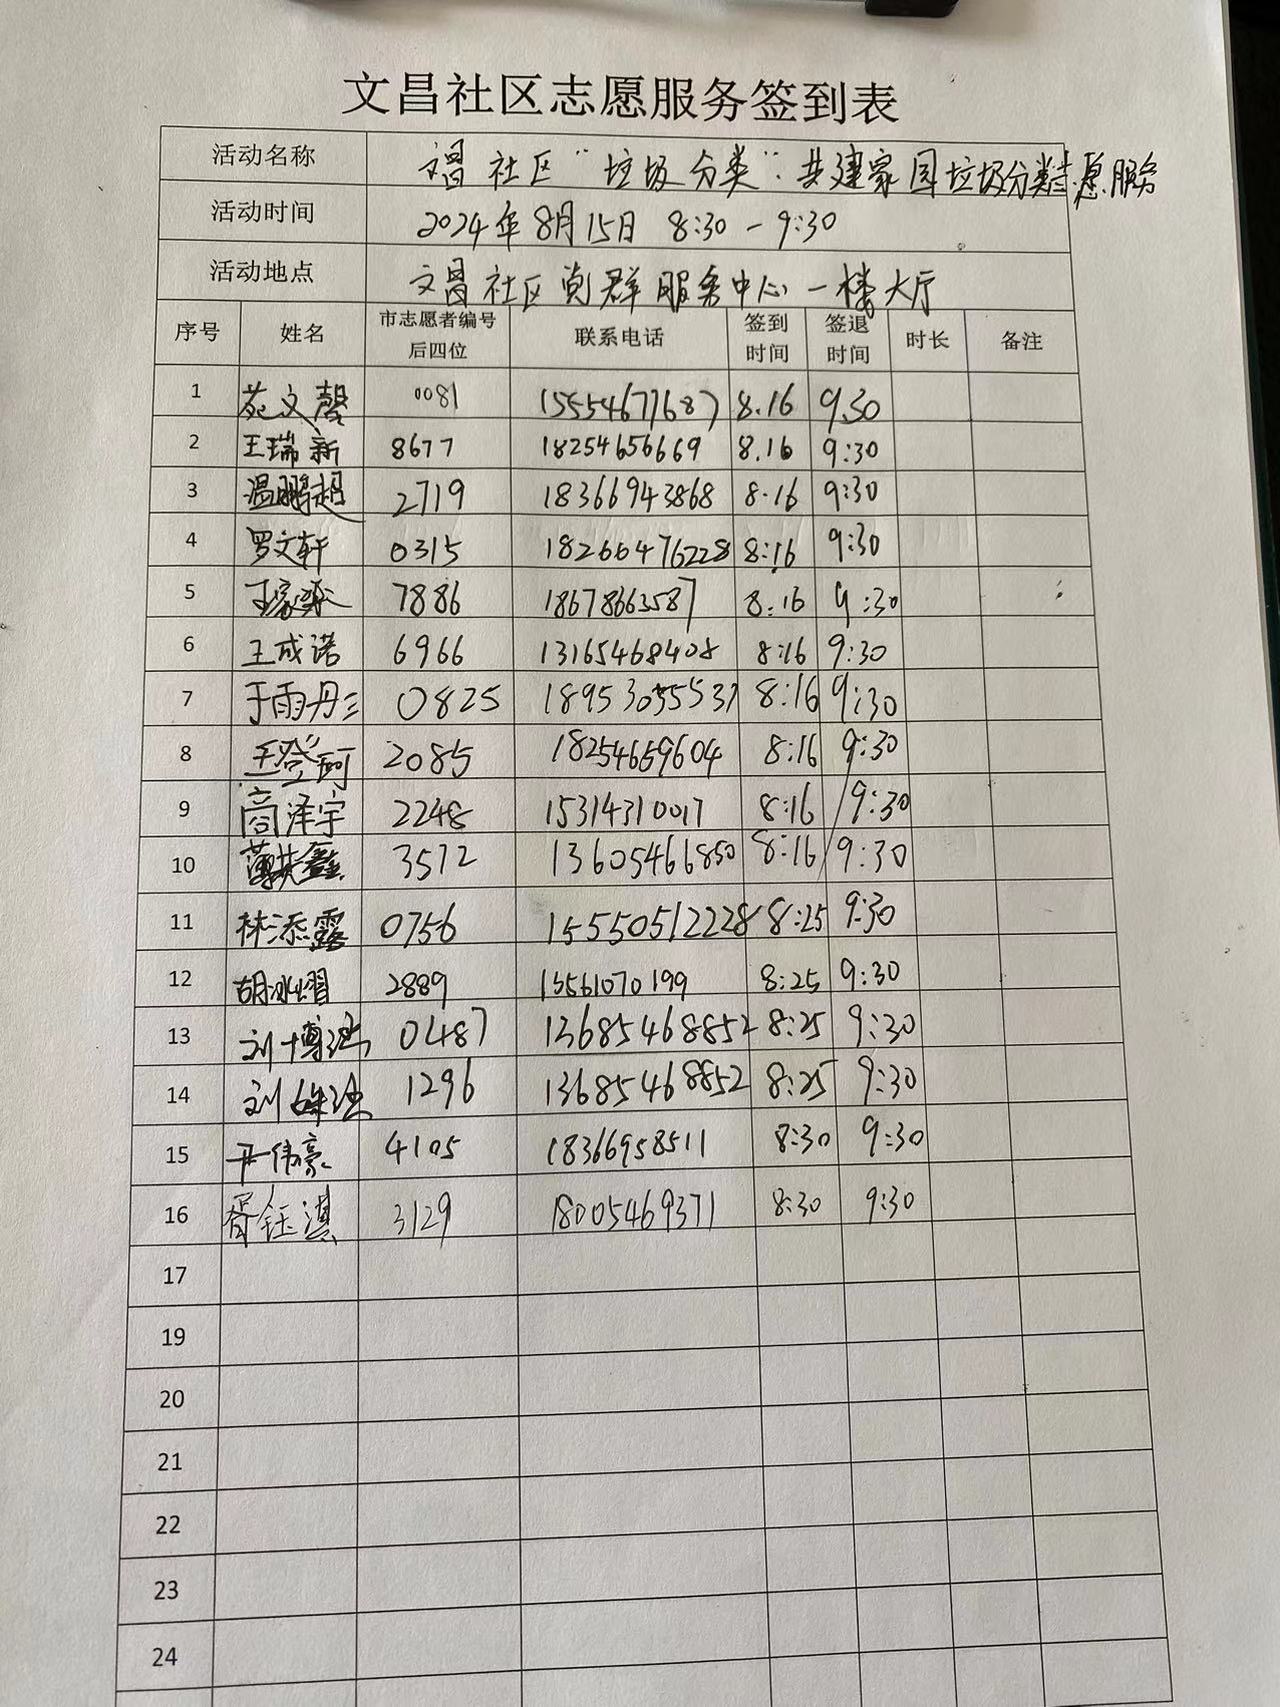 文昌社区志愿服务签到表
活动名称 文昌社区"垃圾分类"共建家园垃圾分类志愿服务
活动时间 2024年8月15日 8:30-9:30
活动地点 文昌社区党群服务中心一楼大厅
序号 姓名 市志愿者编号后四位 联系电话 签到时间 签退时间 时长 备注
1 苑文馨 0081 15554677687 8.16 9.30
2 王瑞新 8677 18254656669 8.16 9:30
3 温鹏超 2719 18366943868 8.16 9:30
4 罗文轩 0315 18266476228 8:16 9:30
5 王家 7886 18678663587 8:16 9:30
6 王成诺 6966 13165468408 8:16 9:30
7 于雨丹 0825 18953055537 8:16 9:30
8 王登珂 2085 18254659604 8:16 9:30
9 商泽宇 2248 15314310017 8:16 9:30
10 薄其鑫 3572 13605466850 8:16 9:30
11 林添露 0756 15550512228 8:25 9:30
12 胡冰熠 2889 15561070199 8:25 9:30
13 刘博 0487 13685468852 8:25 9:30
14 刘 1296 13685468852 8:25 9:30
15 伟豪 4105 18366958511 8:30 9:30
16 胥钰淇 3129 18005469371 8:30 9:30
17
19
20
21
22
23
24